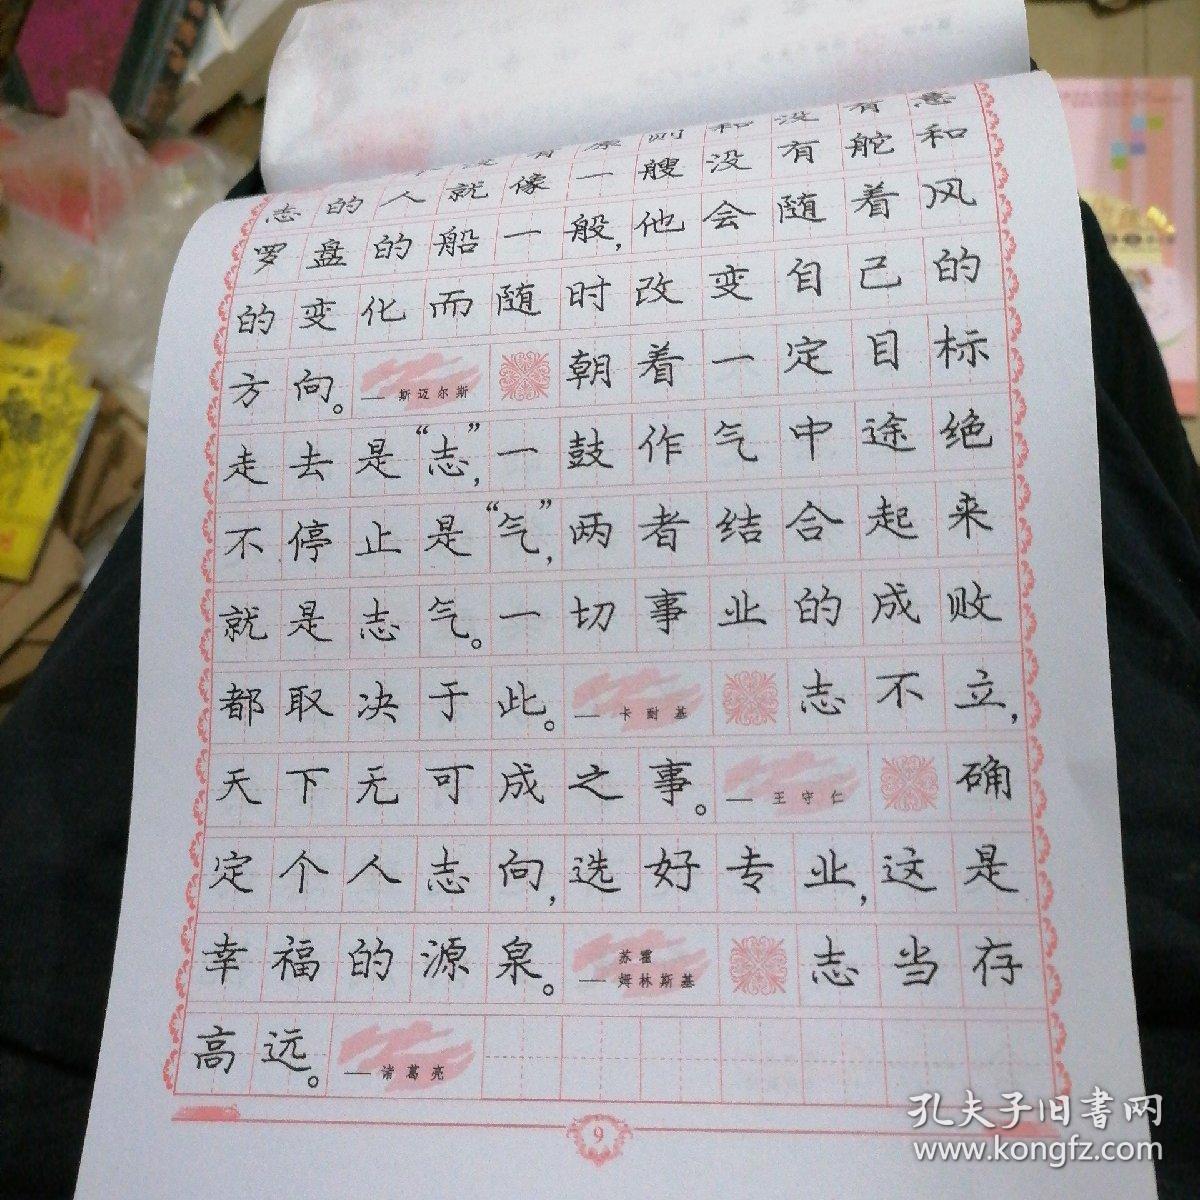 没有原则和没有意
志的人就像一艘没有舵和
罗盘的船一般，他会随着风
的变化而随时改变自己的
方向。——斯迈尔斯 朝着一定目标
走去是“志”，一鼓作气中途绝
不停止是“气”，两者结合起来
就是志气。一切事业的成败
都取决于此。——卡耐基 志不立，
天下无可成之事。——王守仁 确
定个人志向，选好专业，这是
幸福的源泉。——苏霍姆林斯基 志当存
高远。——诸葛亮
9
孔夫子旧书网
www.kongfz.com